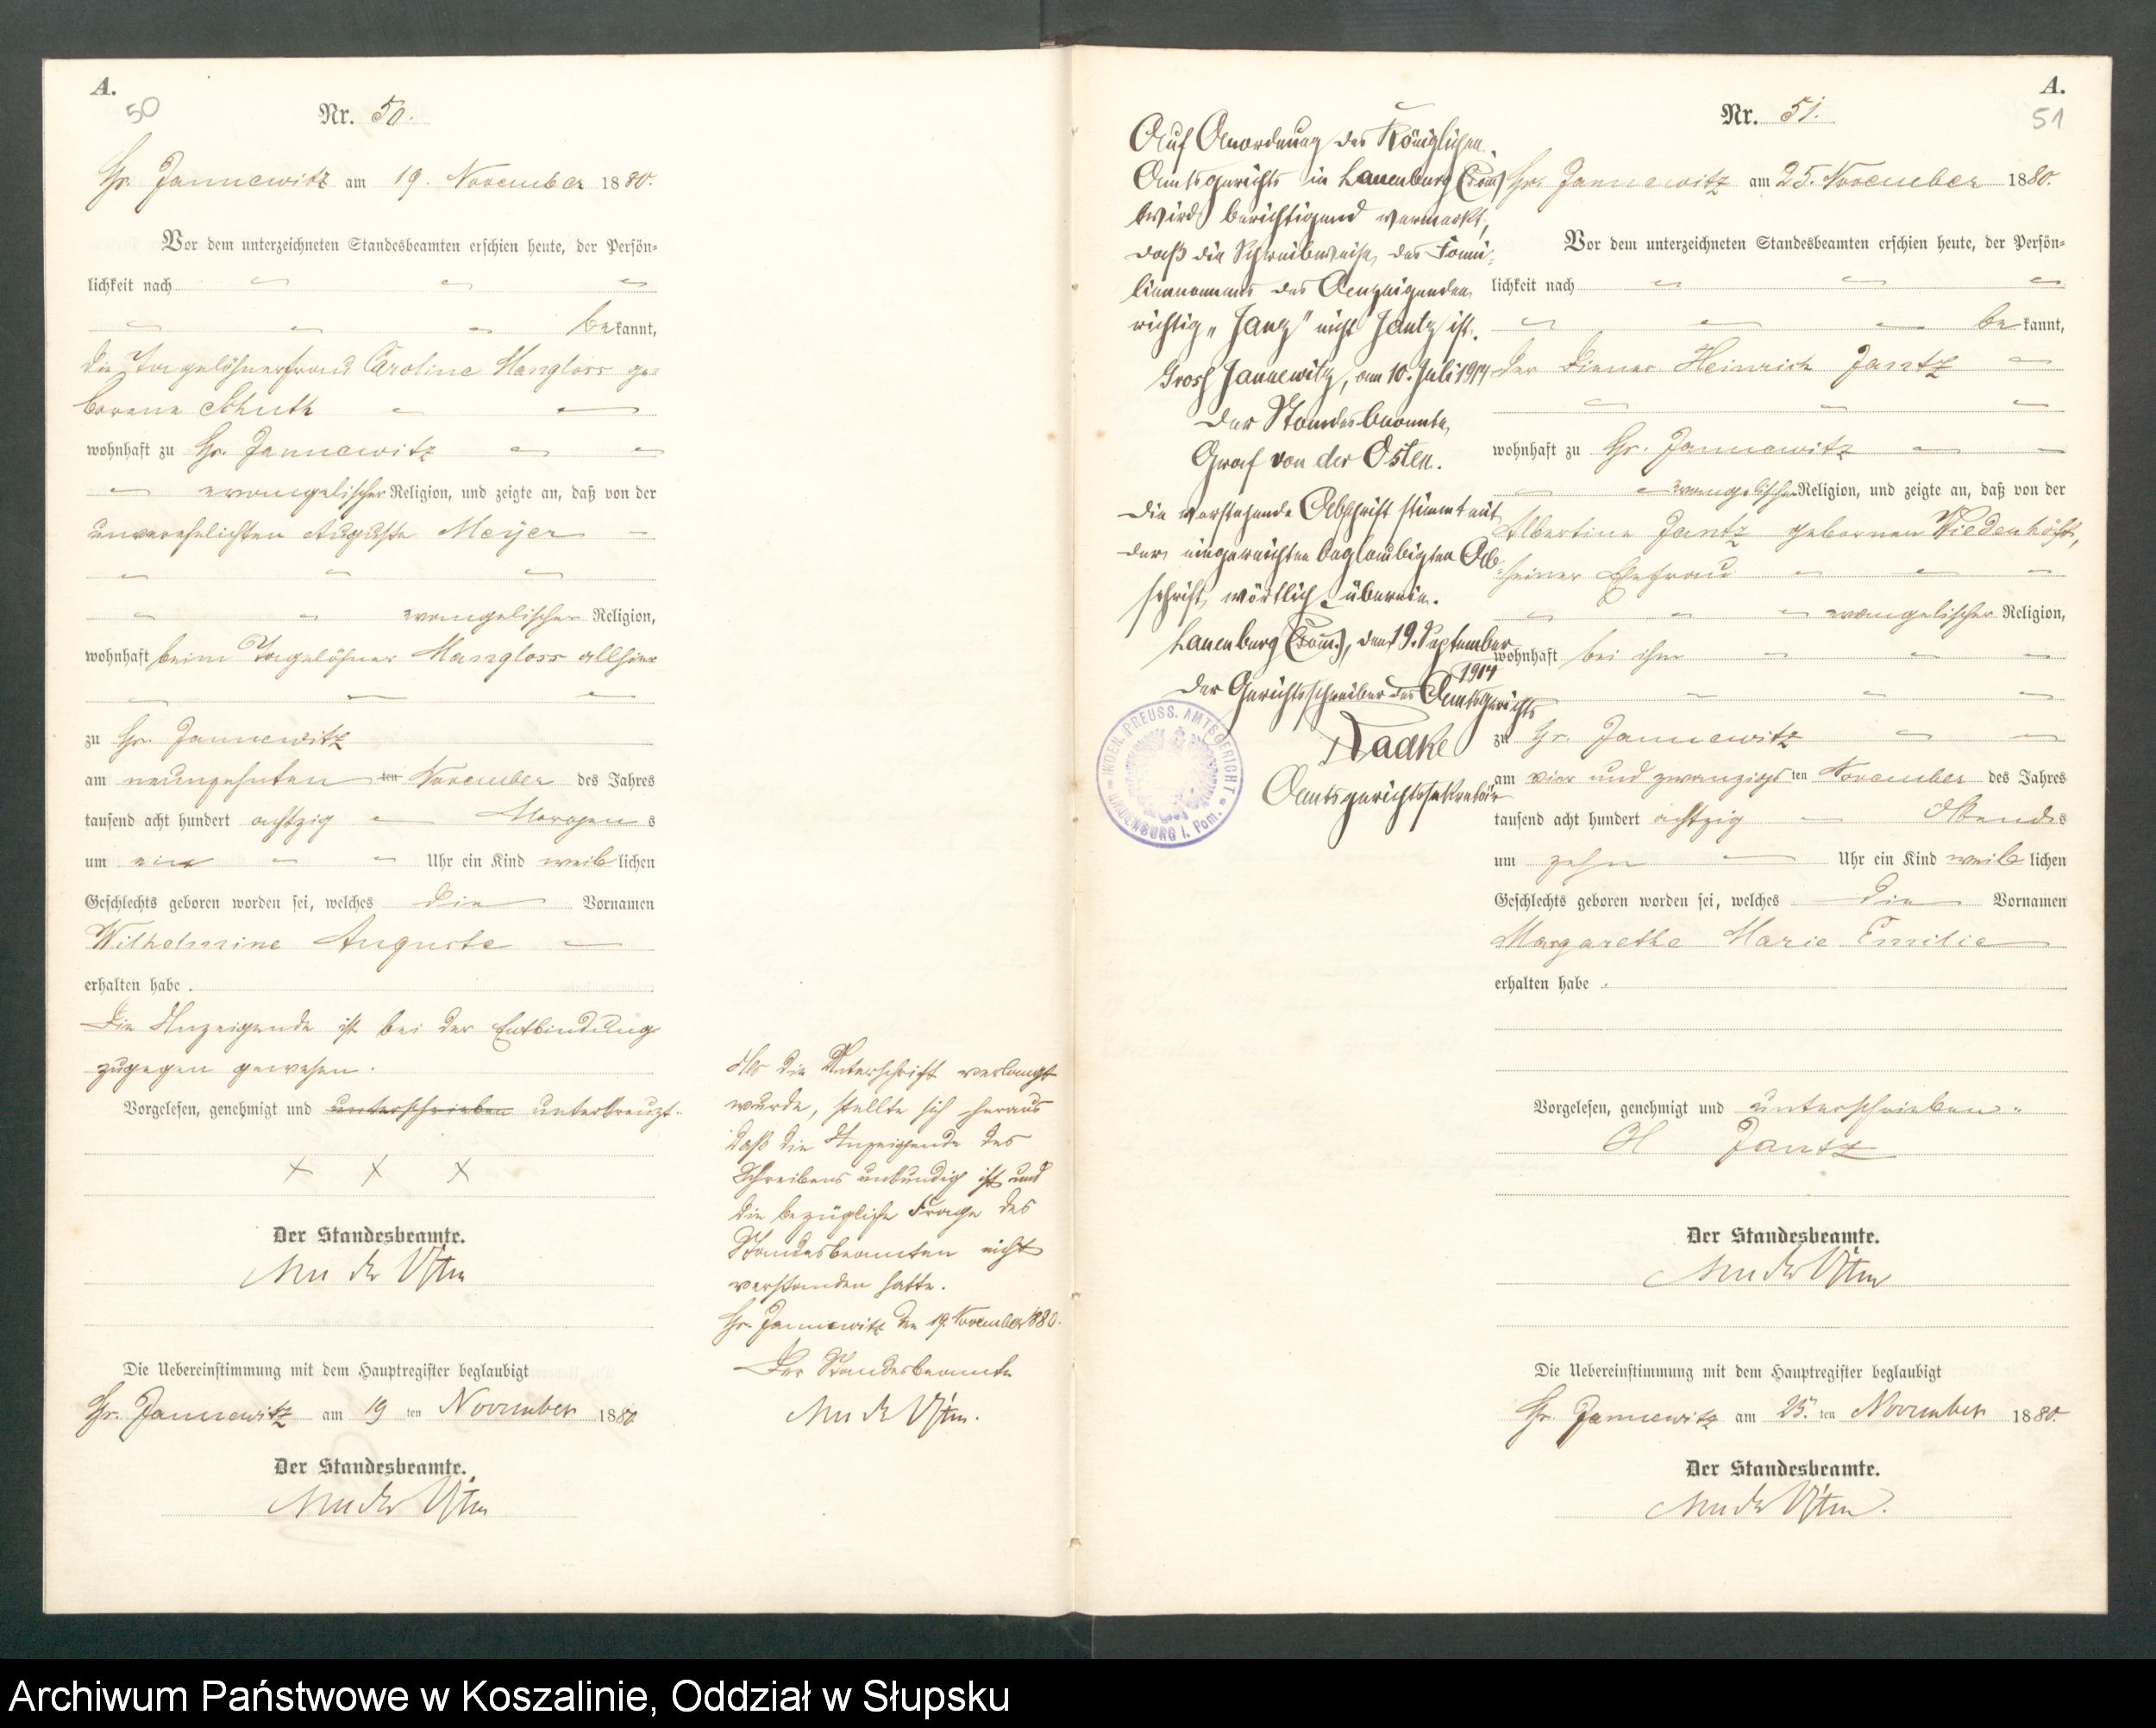 A.
50
Nr. 50.
Gr. Jannewitz am 19. November 1880.
Vor dem unterzeichneten Standesbeamten erschien heute, der Persön=
lichkeit nach
bekannt,
die Tagelöhnerfrau Caroline Mangloss ge=
borene Schuth
wohnhaft zu Gr. Jannewitz
evangelischer Religion, und zeigte an, daß von der
unverehelichten Auguste Meyer
evangelischer Religion,
wohnhaft beim Tagelöhner Mangloss allhier
zu Gr. Jannewitz
am neunzehnten ten November des Jahres
tausend acht hundert achtzig Morgens
um ein Uhr ein Kind weiblichen
Geschlechts geboren worden sei, welches die Vornamen
Wilhelmine Auguste
erhalten habe.
Die Anzeigende ist bei der Entbindung
zugegen gewesen.
Vorgelesen, genehmigt und unterschrieben unterkreuzt.
+ + +
Der Standesbeamte.
Die Uebereinstimmung mit dem Hauptregister beglaubigt
Gr. Jannewitz am 19 ten November 1880
Der Standesbeamte.
Als die Unterschrift verlangt
wurde, stellte sich heraus
daß die Anzeigende des
Schreibens unkundig ist und
die bezügliche Frage des
Standesbeamten nicht
verstanden hatte.
Gr. Jannewitz den 19. November 1880.
Der Standesbeamte
Auf Anordnung des Königlichen
Amtsgerichts in Lauenburg (Pom)
wird berichtigend vermerkt,
daß die Schreibweise des Fami=
liennamens des Anzeigenden
richtig „Janz" nicht Jantz ist.
Gross Jannewitz, am 10. Juli 1914
Der Standesbeamte,
Graf von der Osten.
Die vorstehende Abschrift stimmt mit
der eingereichten beglaubigten Ab=
schrift wörtlich überein.
Lauenburg (Pom.), den 19. September
1914
Der Gerichtsschreiber des Amtsgerichts
Radke
Amtsgerichtssekretär
KOEN. PREUSS. AMTSGERICHT
LAUENBURG i. Pom.
A.
51
Nr. 51.
Gr. Jannewitz am 25. November 1880.
Vor dem unterzeichneten Standesbeamten erschien heute, der Persön=
lichkeit nach
bekannt,
der Diener Heinrich Jantz
wohnhaft zu Gr. Jannewitz
evangelischer Religion, und zeigte an, daß von der
Albertine Jantz gebornen Wiedenhöft,
seiner Ehefrau
evangelischer Religion,
wohnhaft bei ihm
zu Gr. Jannewitz
am vier und zwanzigsten November des Jahres
tausend acht hundert achtzig Abends
um zehn Uhr ein Kind weiblichen
Geschlechts geboren worden sei, welches die Vornamen
Margarethe Marie Emilie
erhalten habe.
Vorgelesen, genehmigt und unterschrieben
H Jantz
Der Standesbeamte.
Die Uebereinstimmung mit dem Hauptregister beglaubigt
Gr. Jannewitz am 25. ten November 1880.
Der Standesbeamte.
Archiwum Państwowe w Koszalinie, Oddział w Słupsku